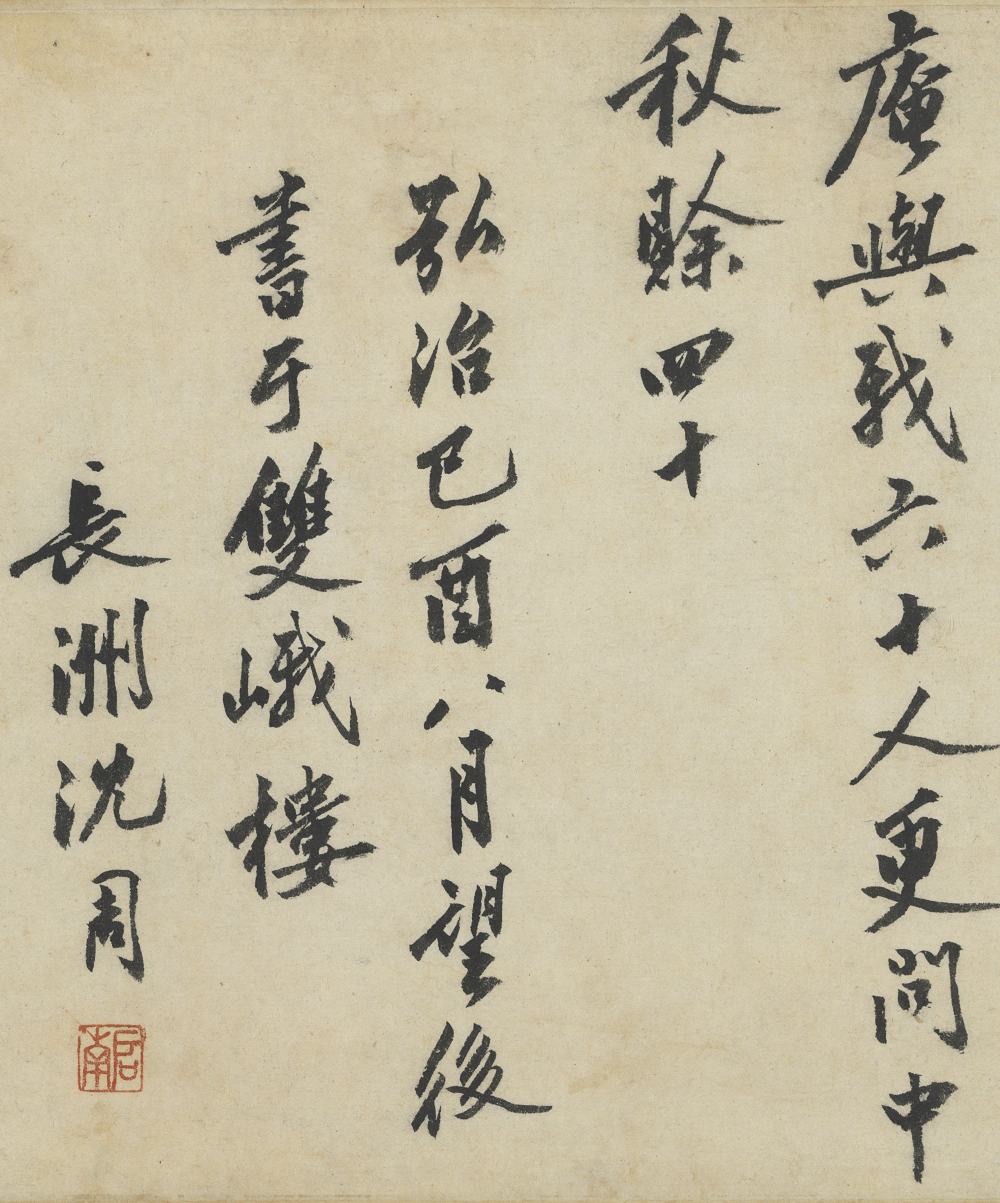 庵與我六十人更問中
秋賒四十
弘治己酉八月望後
書于雙峨樓
長洲沈周
啟南